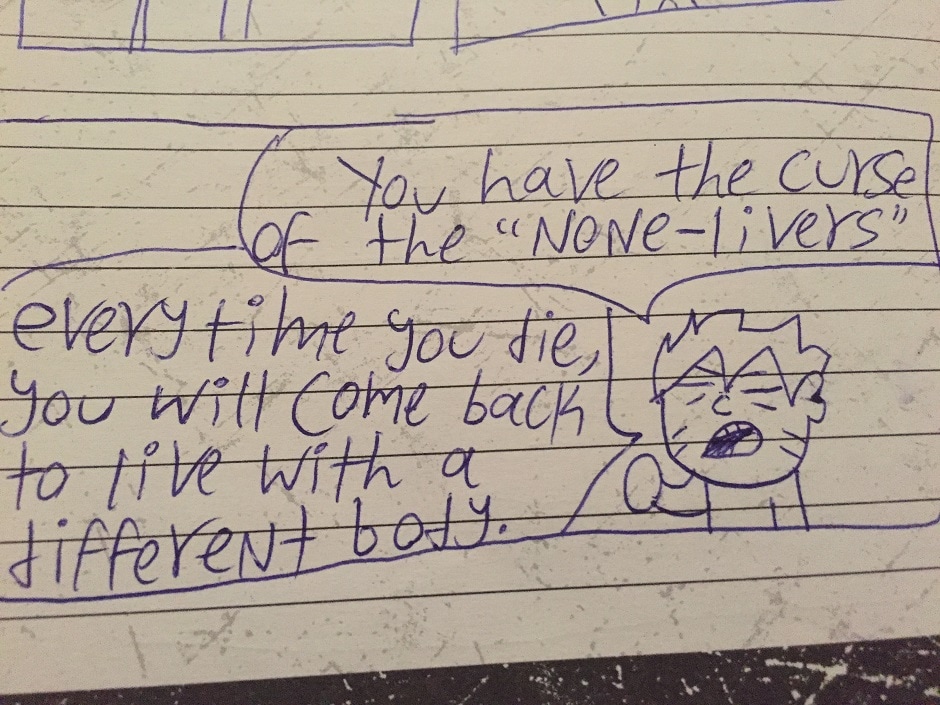 You have the curse
of the “NONe-livers”
every time you die,
you will come back
to live with a
different body.